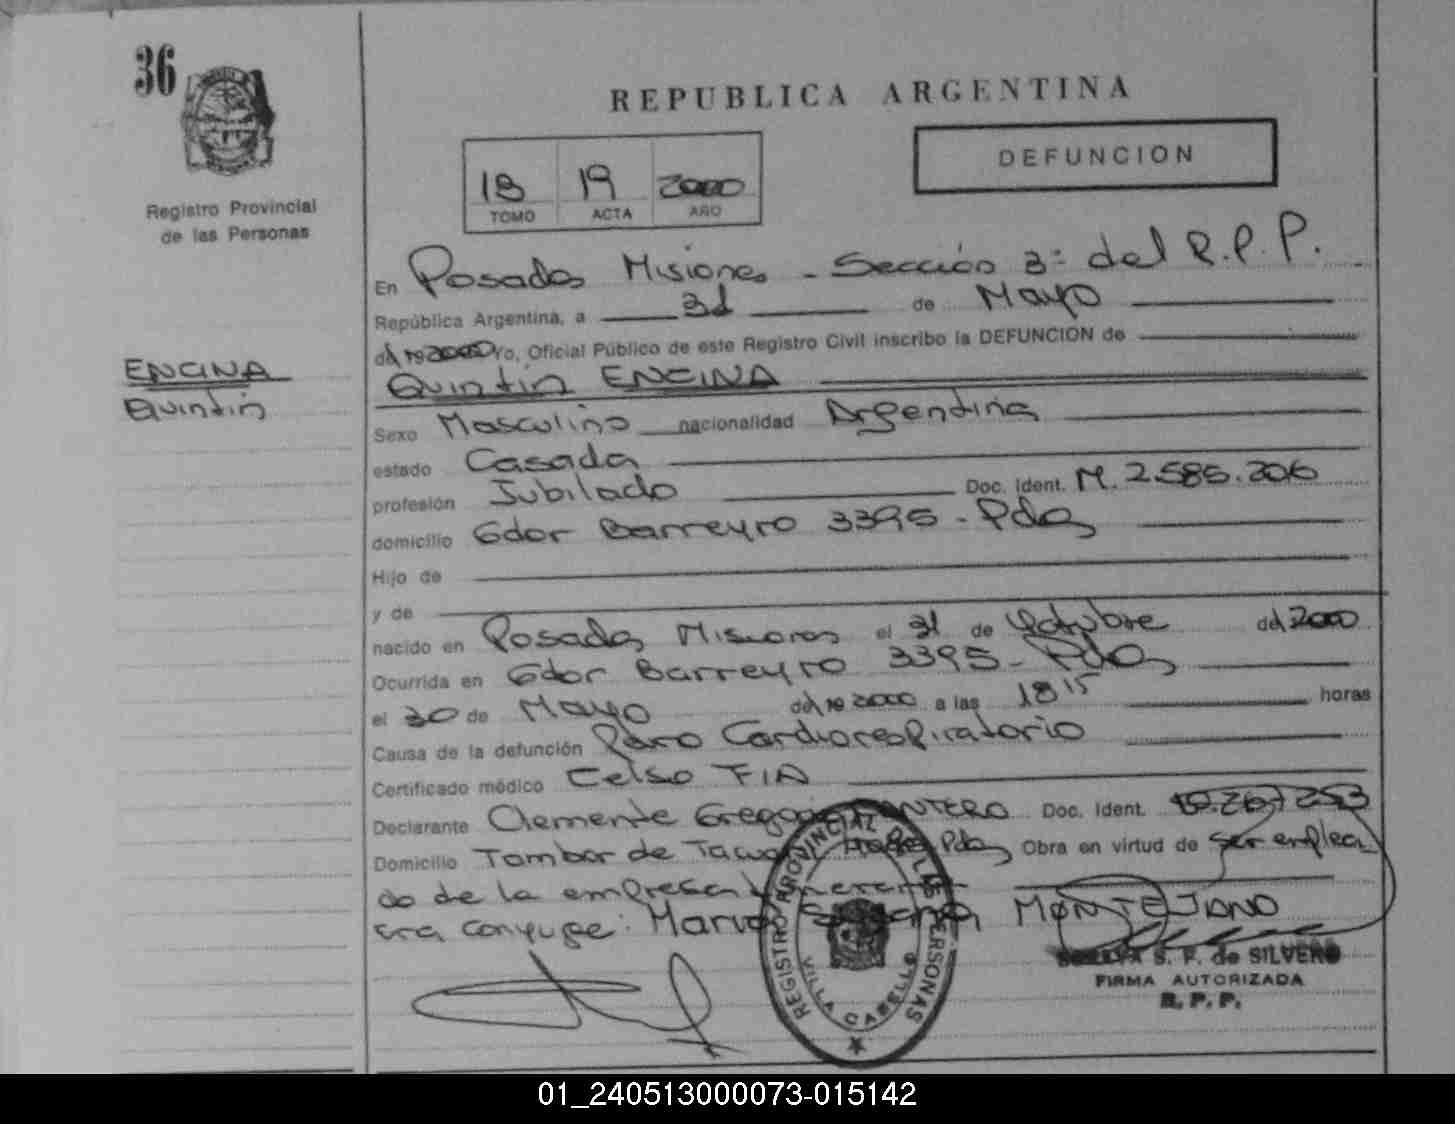 36
REPUBLICA ARGENTINA
DEFUNCION
18 19 2000
TOMO ACTA AÑO
Registro Provincial
de las Personas
En Posadas Misiones - Sección 3ª del R.P.P.
República Argentina, a 31 de Mayo
del 19 2000 Yo, Oficial Público de este Registro Civil inscribo la DEFUNCION de
Quintin ENCINA
ENCINA
Quintin
Sexo Masculino nacionalidad Argentina
estado Casada
profesión Jubilado Doc. Ident. M. 2.585.206
domicilio Gdor Barreyro 3395 - Pdas
Hijo de
y de
nacido en Posadas Misiones el 31 de Octubre del 2000
Ocurrida en Gdor Barreyro 3395 - Pdas
el 30 de Mayo del 19 2000 a las 18 15 horas
Causa de la defunción Paro Cardiorespiratorio
Certificado médico Celso FIA
Declarante Clemente Gregorio Doc. Ident. 10.267253
Domicilio Tambor de Tacuari Pdas Obra en virtud de ser emplea
do de la empresa
era conyuge: MONTEJANO
S. F. de SILVERO
FIRMA AUTORIZADA
R. P. P.
REGISTRO PROVINCIAL DE LAS PERSONAS
VILLA CABELLO
01_240513000073-015142